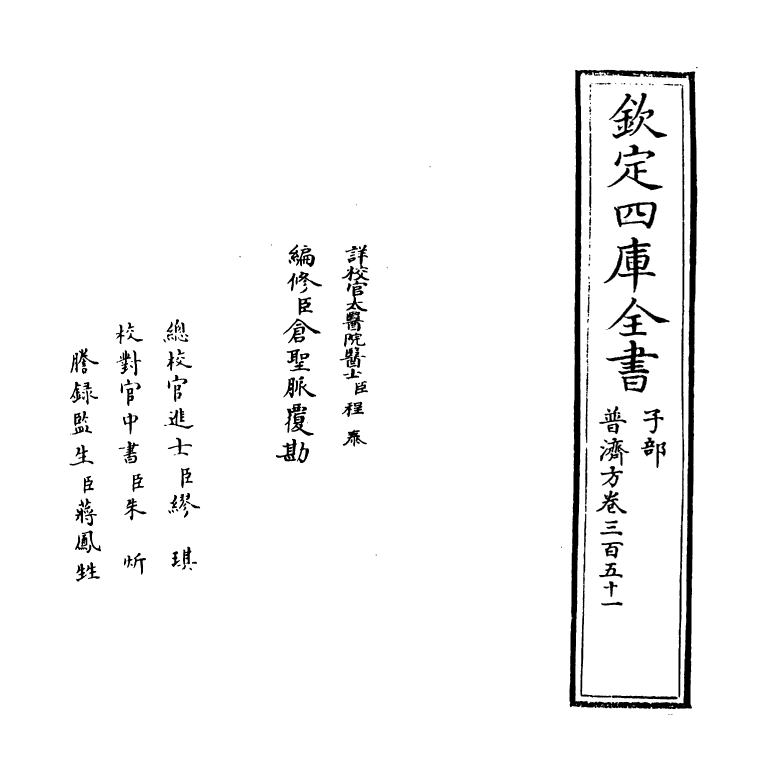 欽定四庫全書
子部
普濟方卷三百五十一
詳校官太醫院醫士臣程泰
編修臣倉聖脈覆勘
總校官進士臣繆琪
校對官中書臣朱炘
謄録監生臣蔣鳳甡